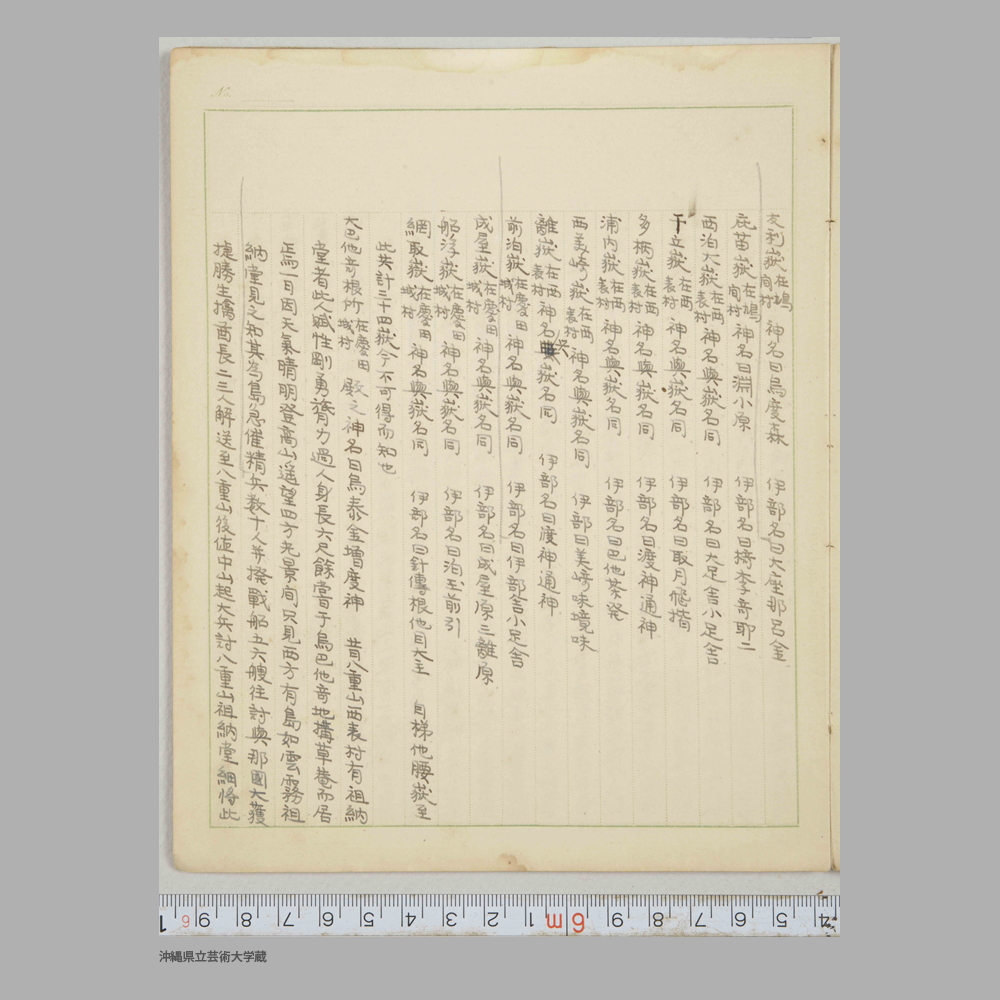 友利嶽 在鳩間村 神名曰鳥度森 伊部名曰大座那呂金
庇苗嶽 在鳩間村 神名曰淵小原 伊部名曰椅李奇耶二
西泊大嶽 在西表村 神名與嶽名同 伊部名曰大足舎小足舎
干立嶽 在西表村 神名與嶽名同 伊部名曰取月
多柄嶽 在西表村 神名與嶽名同 伊部名曰渡神通神
浦内嶽 在西表村 神名與嶽名同 伊部名曰巴他茶発
西美崎嶽 在西表村 神名與嶽名同 伊部曰美崎味境味
離嶽 在西表村 神名與嶽名同 伊部名曰渡神通神
前泊嶽 在慶田城村 神名與嶽名同 伊部名曰伊部舎小足舎
成屋嶽 在慶田城村 神名與嶽名同 伊部名曰成屋原三離原
船浮嶽 在慶田城村 神名與嶽名同 伊部名曰泊玉前引
網取嶽 在慶田城村 神名與嶽名同 伊部名曰針傳根他目大主 自梯他腰嶽至
此共計三十四嶽今不可得而知也
大巴他奇根所 在慶田城村 殿之神名曰鳥泰金増度神 昔八重山西表村有祖納
堂者此人性剛勇膂力過人身長六尺餘嘗于烏巴他奇地搆草菴而居
焉一日因天氣晴明登高山遙望四方光景間只見西方有島如雲霧祖
納堂見之知其為島急催精兵数十人并撥戰船五六艘往討與那國大獲
捷勝生擒酋長二三人解送至八重山後値中山起大兵討八重山祖納堂綑將此
No.
1 6 9 8 7 6 5 4 3 2 1 6m 9 8 7 6 5 4
沖縄県立芸術大学蔵